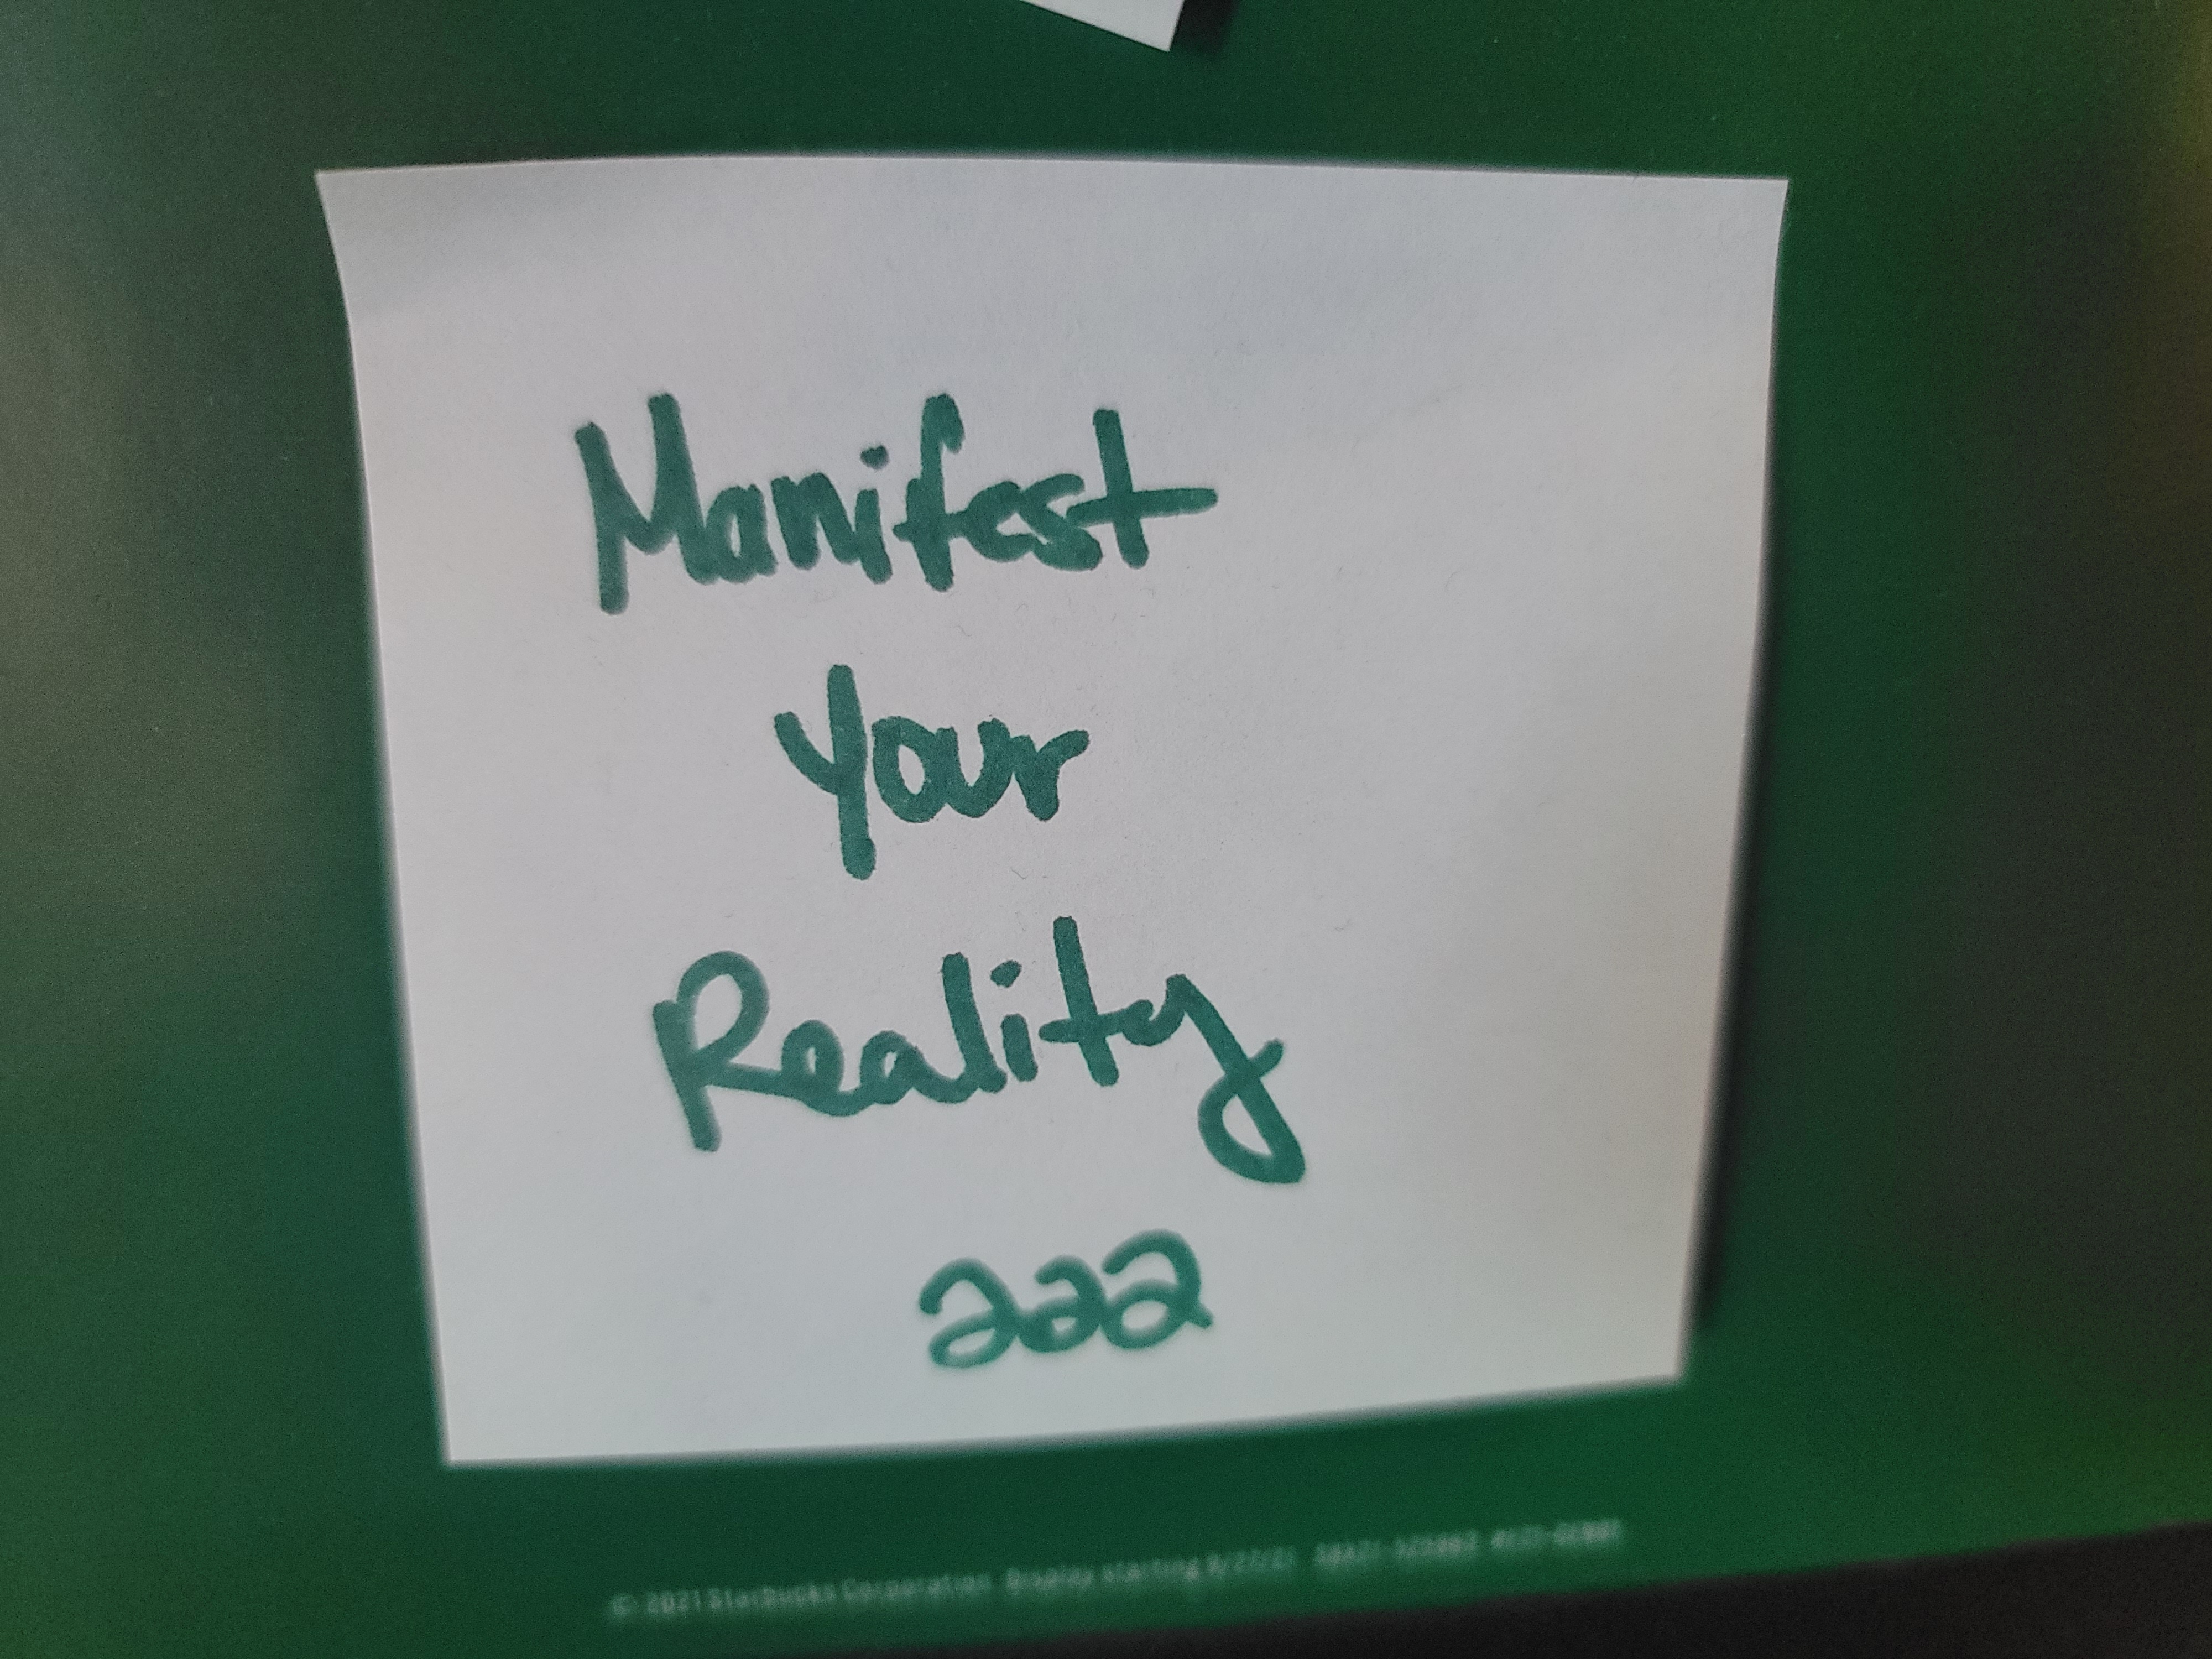 Manifest
Your
Reality
222
© 2021 Starbucks Corporation. Display starting